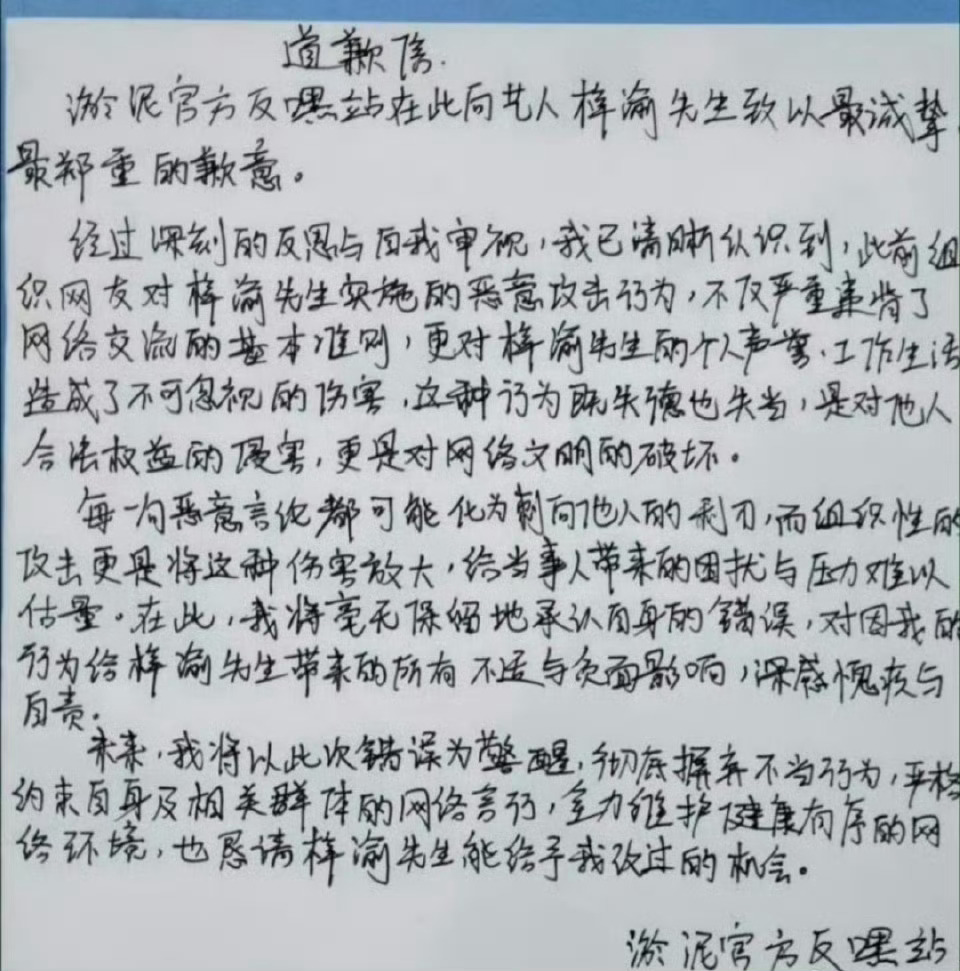 道歉信.
淤泥官方反嘿站在此向艺人梓渝先生致以最诚挚、
最郑重的歉意。
经过深刻的反思与自我审视，我已清晰认识到，此前组
织网友对梓渝先生实施的恶意攻击行为，不仅严重违背了
网络交流的基本准则，更对梓渝先生的个人声誉、工作生活
造成了不可忽视的伤害，这种行为既失德也失当，是对他人
合法权益的侵害，更是对网络文明的破坏。
每一句恶意言论都可能化为刺向他人的利刃，而组织性的
攻击更是将这种伤害放大，给当事人带来的困扰与压力难以
估量。在此，我将毫无保留地承认自身的错误，对因我的
行为给梓渝先生带来的所有不适与负面影响，深感愧疚与
自责。
未来，我将以此次错误为警醒，彻底摒弃不当行为，严格
约束自身及相关群体的网络言行，全力维护健康有序的网
络环境，也恳请梓渝先生能给予我改过的机会。
淤泥官方反嘿站